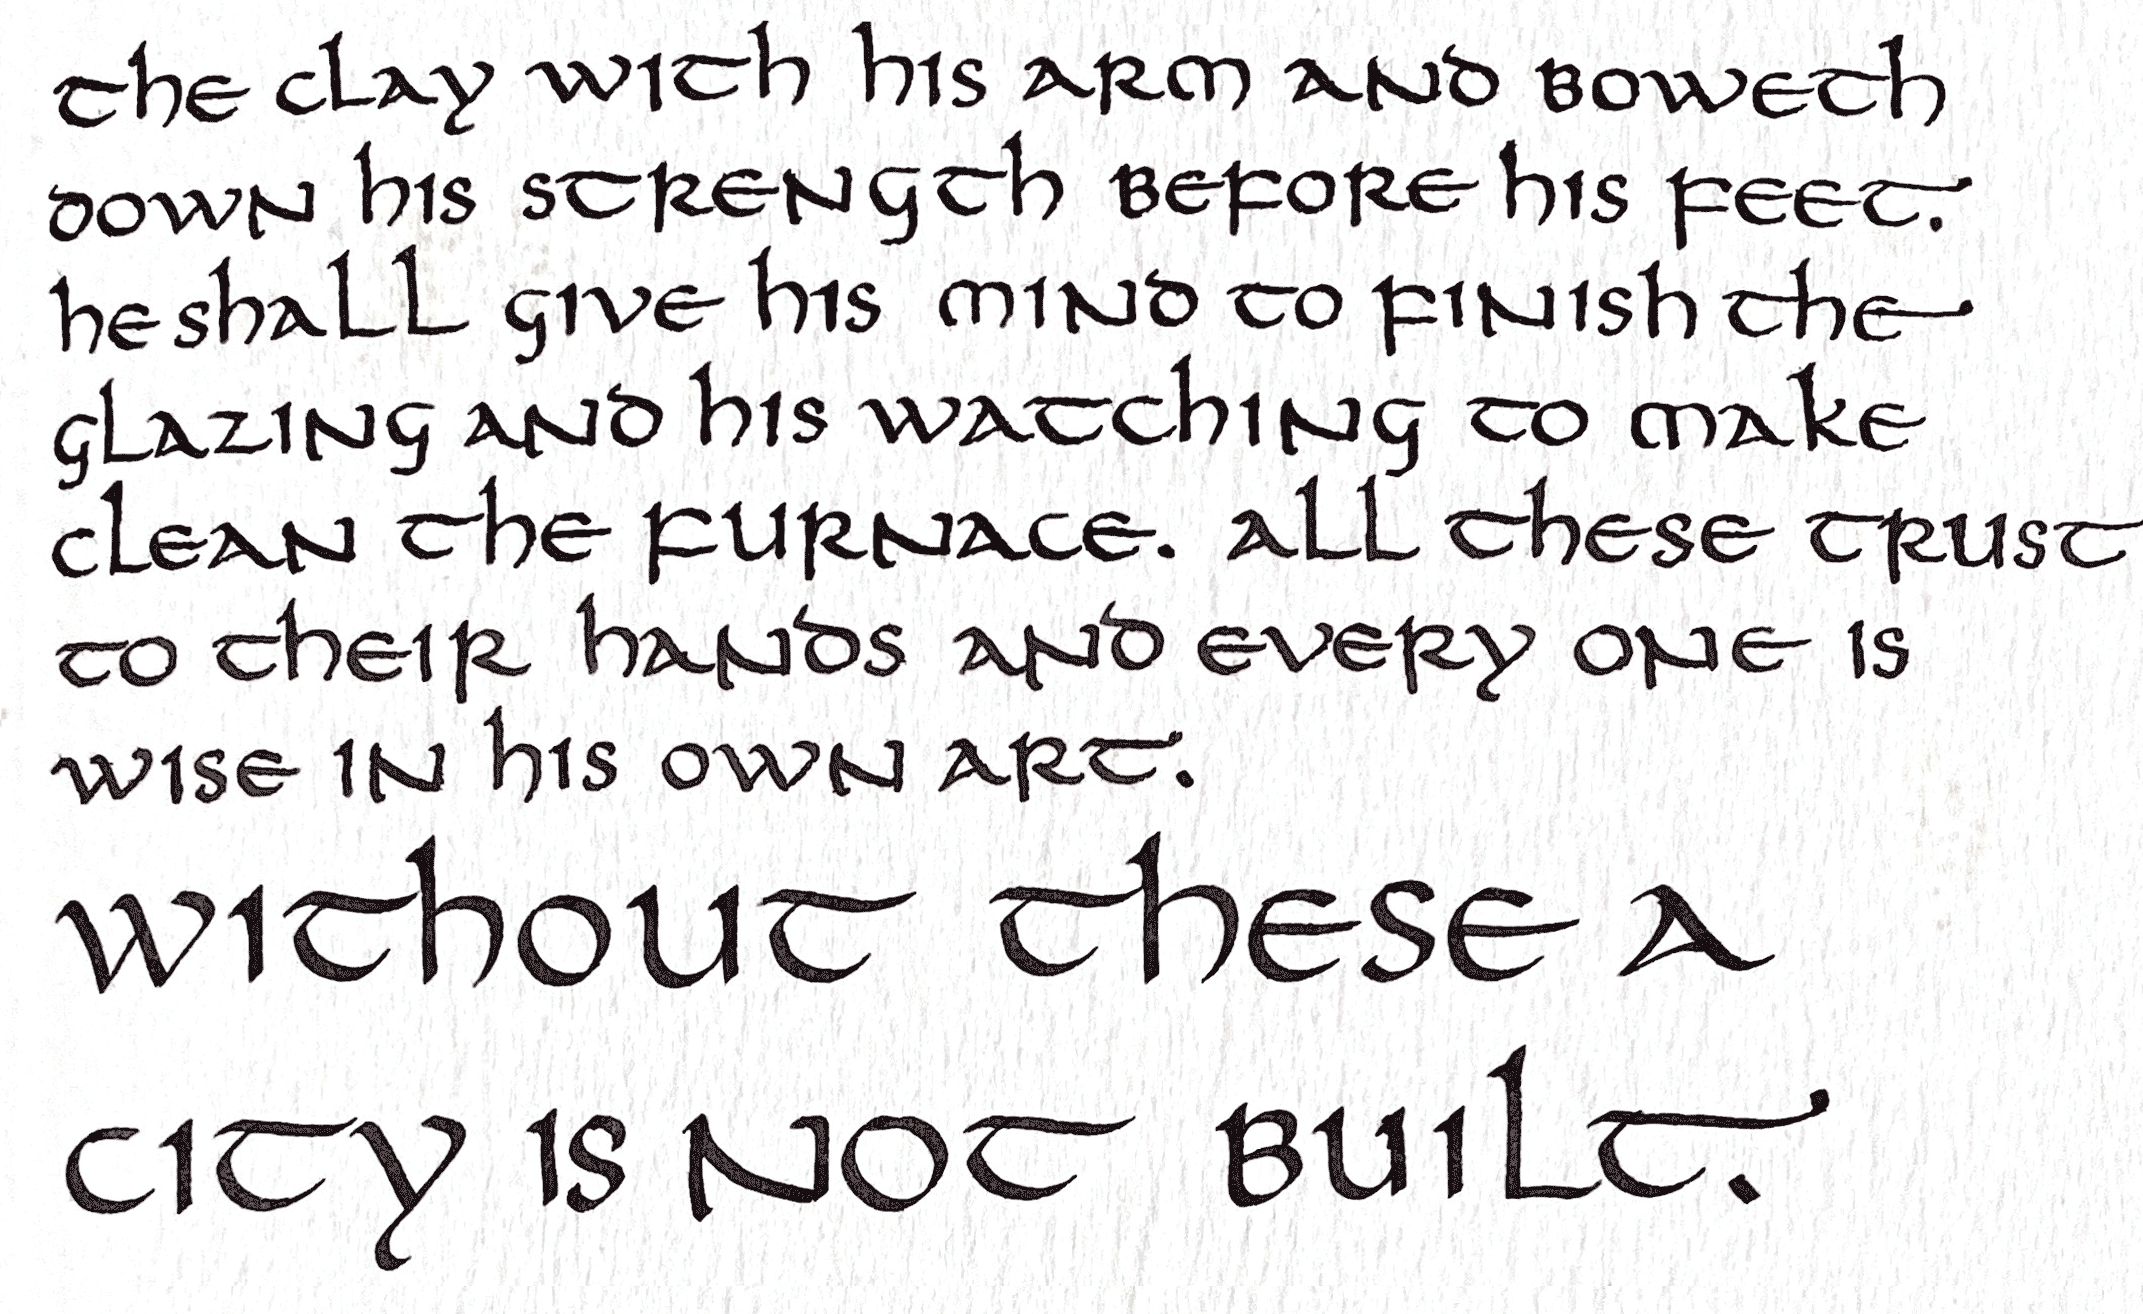 the clay with his arm and boweth
down his strength before his feet.
he shall give his mind to finish the
glazing and his watching to make
clean the furnace. all these trust
to their hands and every one is
wise in his own art.
without these a
city is not built.